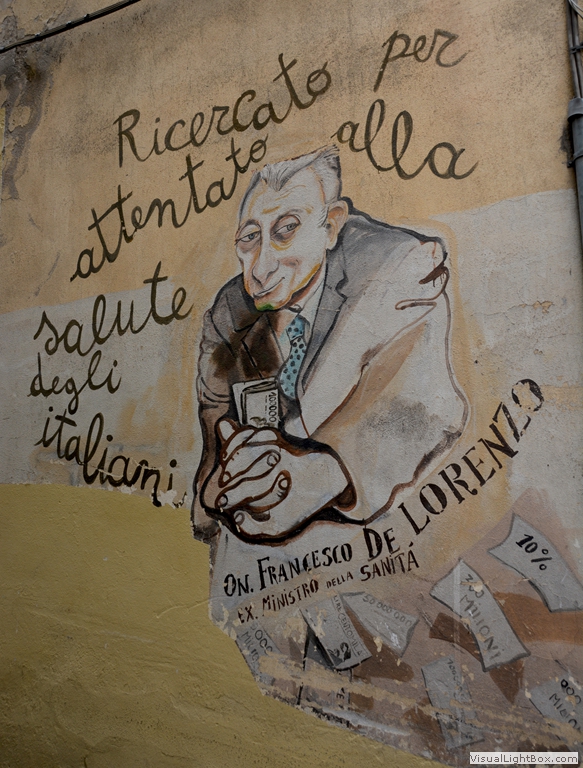 Ricercato per
attentato alla
salute
degli
italiani
100.000
ON. FRANCESCO DE LORENZO
EX. MINISTRO DELLA SANITÁ
10%
200
MILIONI
50.000.000
VisualLightBox.com